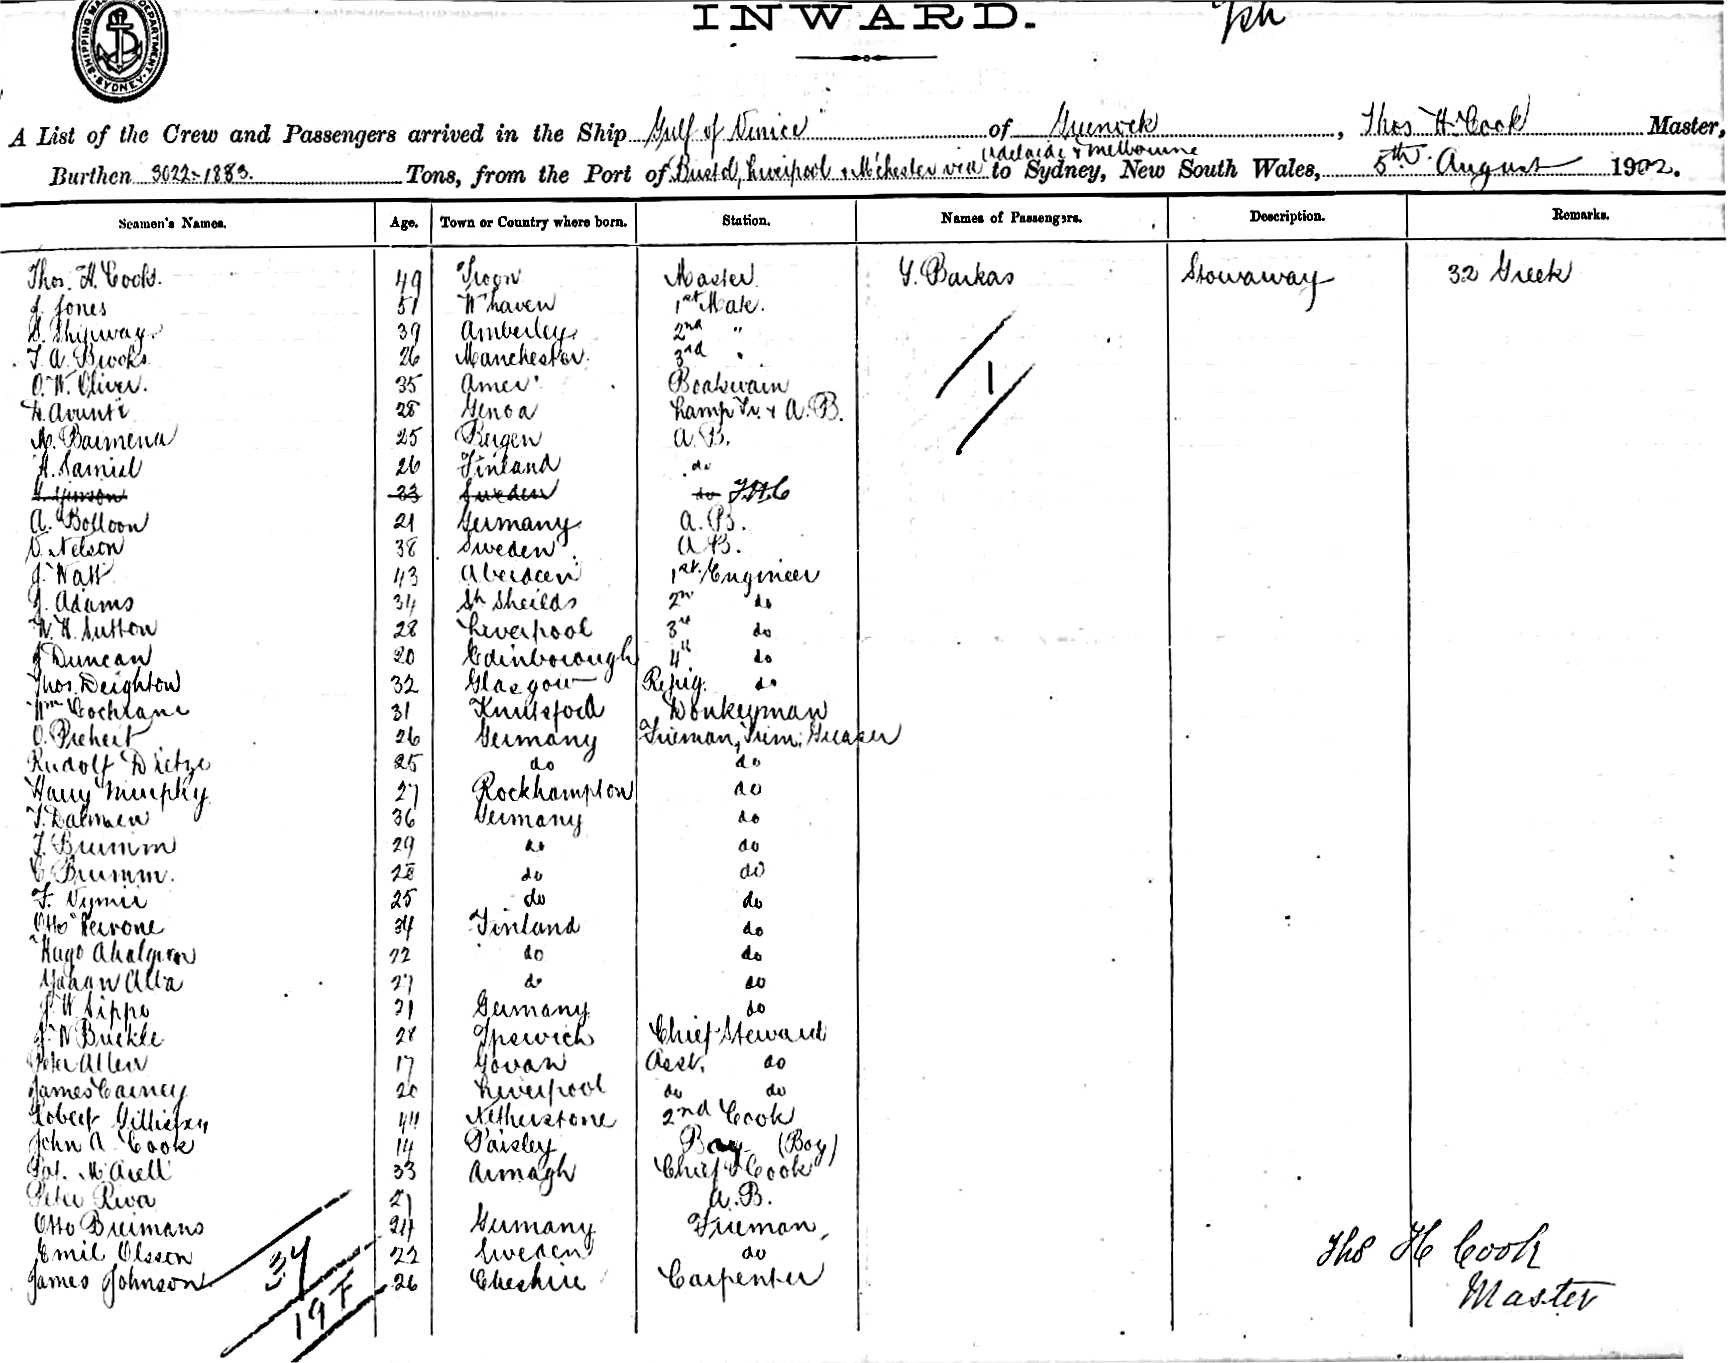 INWARD.
SHIPPING MASTER'S DEPARTMENT SYDNEY
A List of the Crew and Passengers arrived in the Ship Gulf of Venice of Greenock, Thos H Cook Master,
Adelaide & Melbourne
Burthen 3022-1883. Tons, from the Port of Bristol, Liverpool & M'chester via to Sydney, New South Wales, 5th August 1902.
Seamen's Names. Age. Town or Country where born. Station. Names of Passengers. Description. Remarks.
Thos. H. Cook. 49 Troon Master. Y. Barkas Stowaway 32 Greek
J. Jones 51 W'haven 1st Mate.
S. Shipway 39 Amberley 2nd "
F. A. Brooks 26 Manchester 3rd "
O. W. Oliver. 35 Amer' Boatswain
28 Genoa Lamp Tr. & A.B.
25 Bergen A.B.
26 Finland do
33 Sweden do T.H.C
A. Bolloon 21 Germany A.B.
Nelson 38 Sweden A.B.
J. Watt 43 Aberdeen 1st Engineer
J. Adams 34 Sth Sheilds 2nd do
W. H. Sutton 28 Liverpool 3rd do
J Duncan 20 Edinborough 4th do
Thos. Deighton 32 Glasgow Refrig. do
Wm Cochrane 31 Knutsford Donkeyman
26 Germany Fireman, Trim, Greaser
Rudolf Dietze 25 do do
Harry Murphy 27 Rockhampton do
36 Germany do
F. Brumm 29 do do
C Brumm. 28 do do
25 do do
Otto 34 Finland do
Hugo 22 do do
27 do do
J. W Sippe 21 Germany do
J. W Buckle 28 Ipswich Chief Steward
Peter Allen 17 Govan Asst. do
James Carney 20 Liverpool do do
Robert 44 Netherstone 2nd Cook
John A. Cook 14 Paisley Boy (Boy)
Pat. 33 Armagh Chief Cook
Peter Riva 27 A.B.
Otto 24 Germany Fireman,
Emil Olsson 22 Sweden do
James Johnson 26 Cheshire Carpenter
1
37
19 F
Thos H Cook
Master